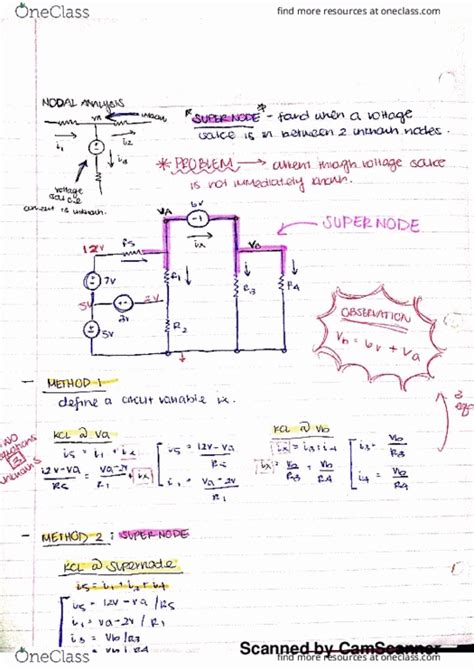 OneClass
find more resources at oneclass.com
NODAL ANALYSIS
VA
unknown
i1
i2
voltage
source
current is unknown.
* SUPER NODE * - found when a voltage
source is in between 2 unknown nodes.
* PROBLEM → current through voltage source
is not immediately known.
VA
6V
ix
Vb
SUPERNODE
12V
R5
7V
R1
R3
R4
5V
2V
R2
5V
OBSERVATION
Vb = 6V + Va
- METHOD 1
define a circuit variable ix.
KCL @ Va
i5 = i1 + ix
12V-Va / R5 = Va-2V / R1 + ix
i5 = 12V-Va / R5
i1 = Va-2V / R1
KCL @ Vb
ix = i3+i4
ix = Vb / R3 + Vb / R4
i3 = Vb / R3
i4 = Vb / R4
NO
equations
3
unknowns
- METHOD 2 : SUPERNODE
KCL @ Supernode
i5 = i1 + i3 + i4
i5 = 12V - Va / R5
i1 = Va - 2V / R1
i3 = Vb / R3
Scanned by CamScanner
OneClass
find more resources at oneclass.com